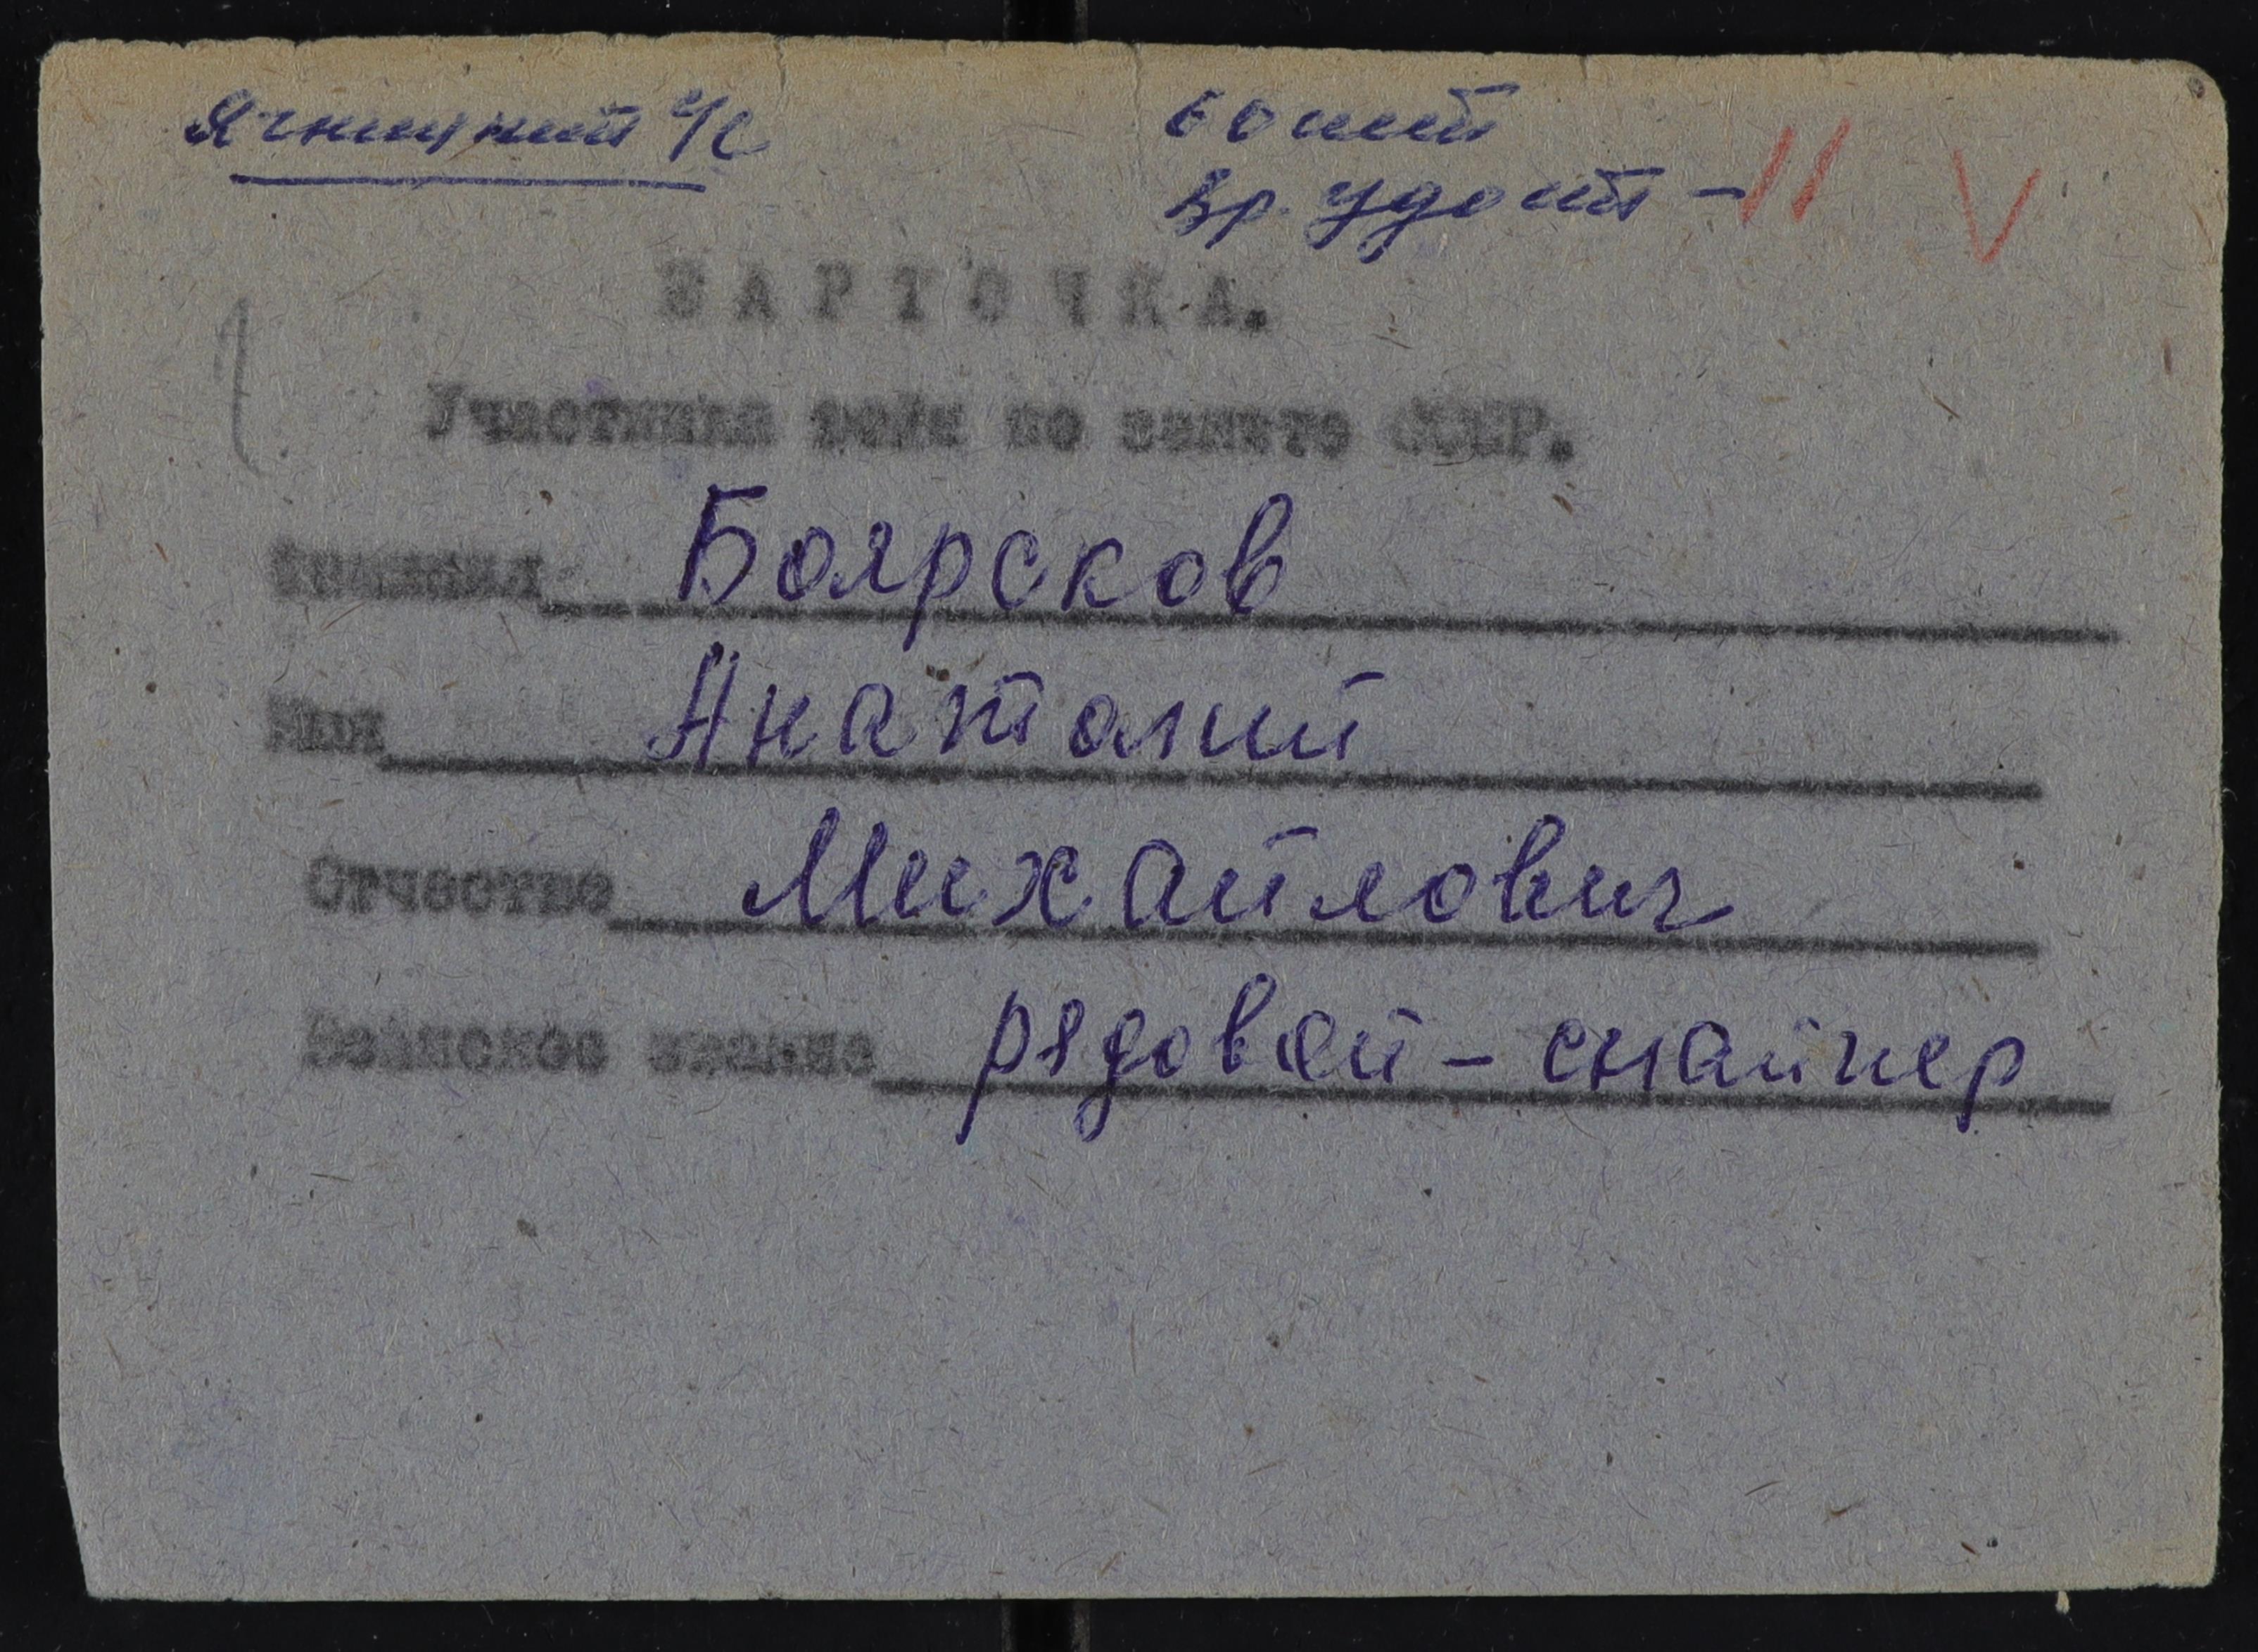 Ячницкий с/с
60 лет
Вр. удост –
КАРТОЧКА.
Участника войн по защите СССР.
Фамилия Боярсков
Имя Анатолий
Отчество Михайлович
Воинское звание рядовой – снайпер